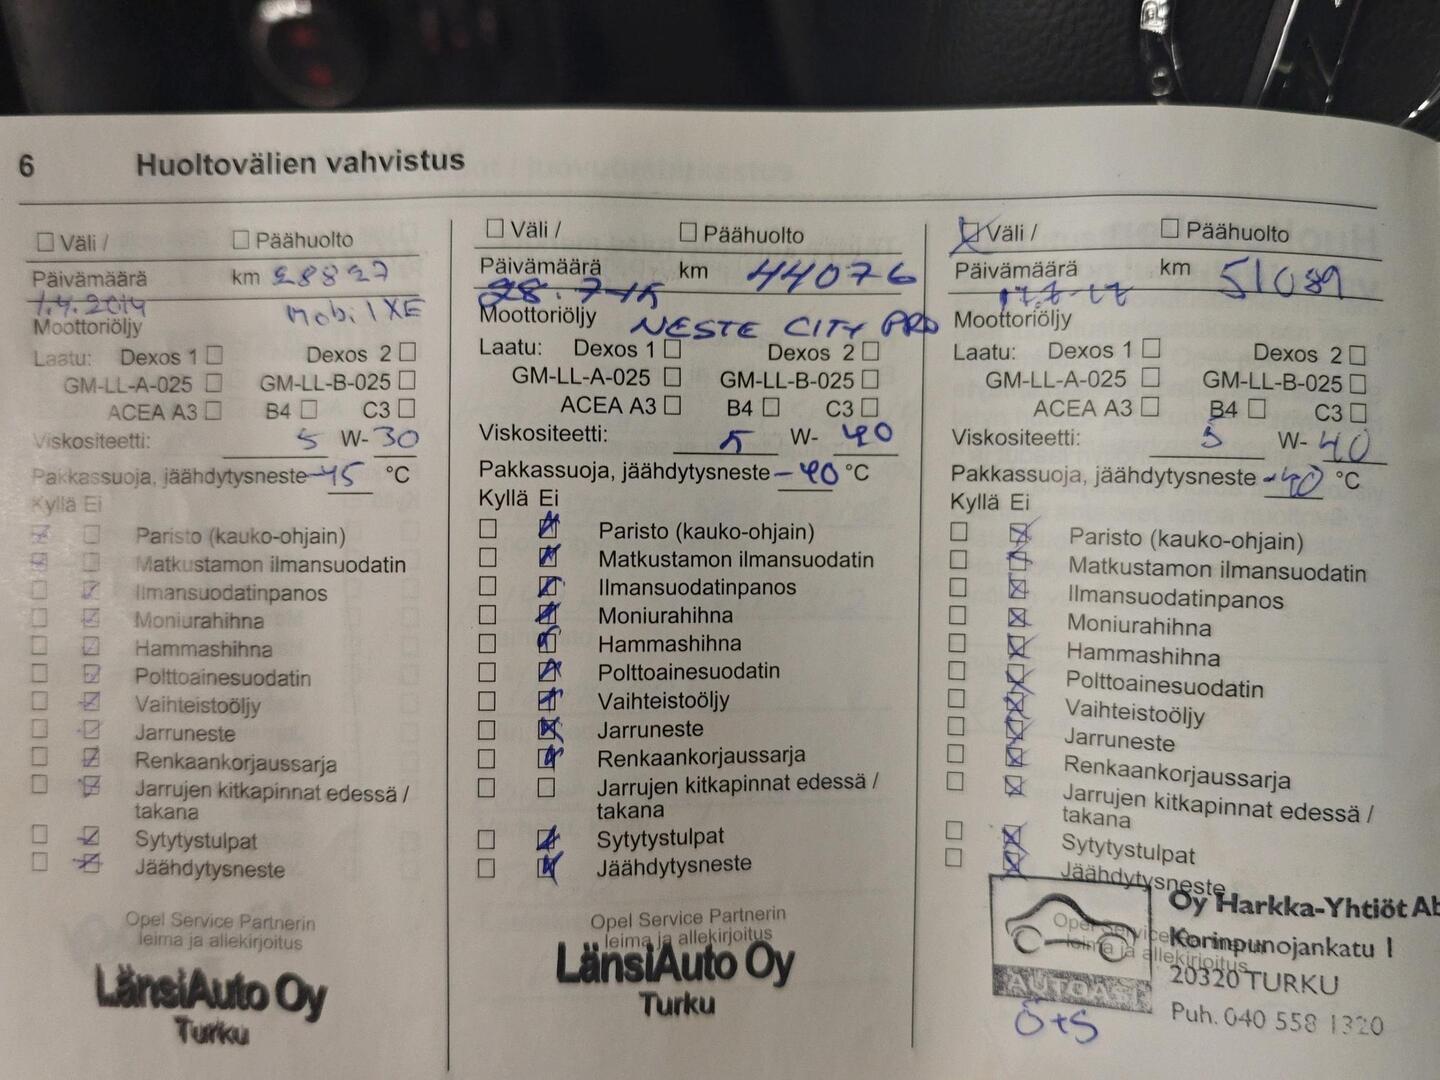 6 Huoltovälien vahvistus
Väli / Päähuolto
Päivämäärä km 28827
1.4.2014 Mobil 1 XE
Moottoriöljy
Laatu: Dexos 1 Dexos 2
GM-LL-A-025 GM-LL-B-025
ACEA A3 B4 C3
Viskositeetti: 5 W- 30
Pakkassuoja, jäähdytysneste -45 °C
Kyllä Ei
Paristo (kauko-ohjain)
Matkustamon ilmansuodatin
Ilmansuodatinpanos
Moniurahihna
Hammashihna
Polttoainesuodatin
Vaihteistoöljy
Jarruneste
Renkaankorjaussarja
Jarrujen kitkapinnat edessä /
takana
Sytytystulpat
Jäähdytysneste
Opel Service Partnerin
leima ja allekirjoitus
LänsiAuto Oy
Turku
Väli / Päähuolto
Päivämäärä km 44076
28.7-15
Moottoriöljy NESTE CITY PRO
Laatu: Dexos 1 Dexos 2
GM-LL-A-025 GM-LL-B-025
ACEA A3 B4 C3
Viskositeetti: 5 W- 40
Pakkassuoja, jäähdytysneste -40 °C
Kyllä Ei
Paristo (kauko-ohjain)
Matkustamon ilmansuodatin
Ilmansuodatinpanos
Moniurahihna
Hammashihna
Polttoainesuodatin
Vaihteistoöljy
Jarruneste
Renkaankorjaussarja
Jarrujen kitkapinnat edessä /
takana
Sytytystulpat
Jäähdytysneste
Opel Service Partnerin
leima ja allekirjoitus
LänsiAuto Oy
Turku
Väli / Päähuolto
Päivämäärä km 51089
Moottoriöljy
Laatu: Dexos 1 Dexos 2
GM-LL-A-025 GM-LL-B-025
ACEA A3 B4 C3
Viskositeetti: 5 W- 40
Pakkassuoja, jäähdytysneste -40 °C
Kyllä Ei
Paristo (kauko-ohjain)
Matkustamon ilmansuodatin
Ilmansuodatinpanos
Moniurahihna
Hammashihna
Polttoainesuodatin
Vaihteistoöljy
Jarruneste
Renkaankorjaussarja
Jarrujen kitkapinnat edessä /
takana
Sytytystulpat
Jäähdytysneste
Opel Service Partnerin
leima ja allekirjoitus
Oy Harkka-Yhtiöt Ab
Korinpunojankatu 1
20320 TURKU
Puh. 040 558 1320
AUTOASI
Ö+S